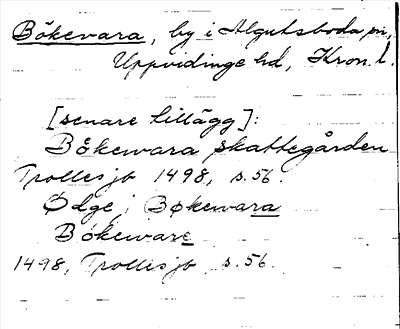 Bökevara, by i Algutsboda sn,
Uppvidinge hd, Kron. l.
[senare tillägg]:
Bökewara skattegården
Trolles jb 1498, s. 56.
Ødge i Bøkewara
Bökeware
1498, Trolles jb s. 56.